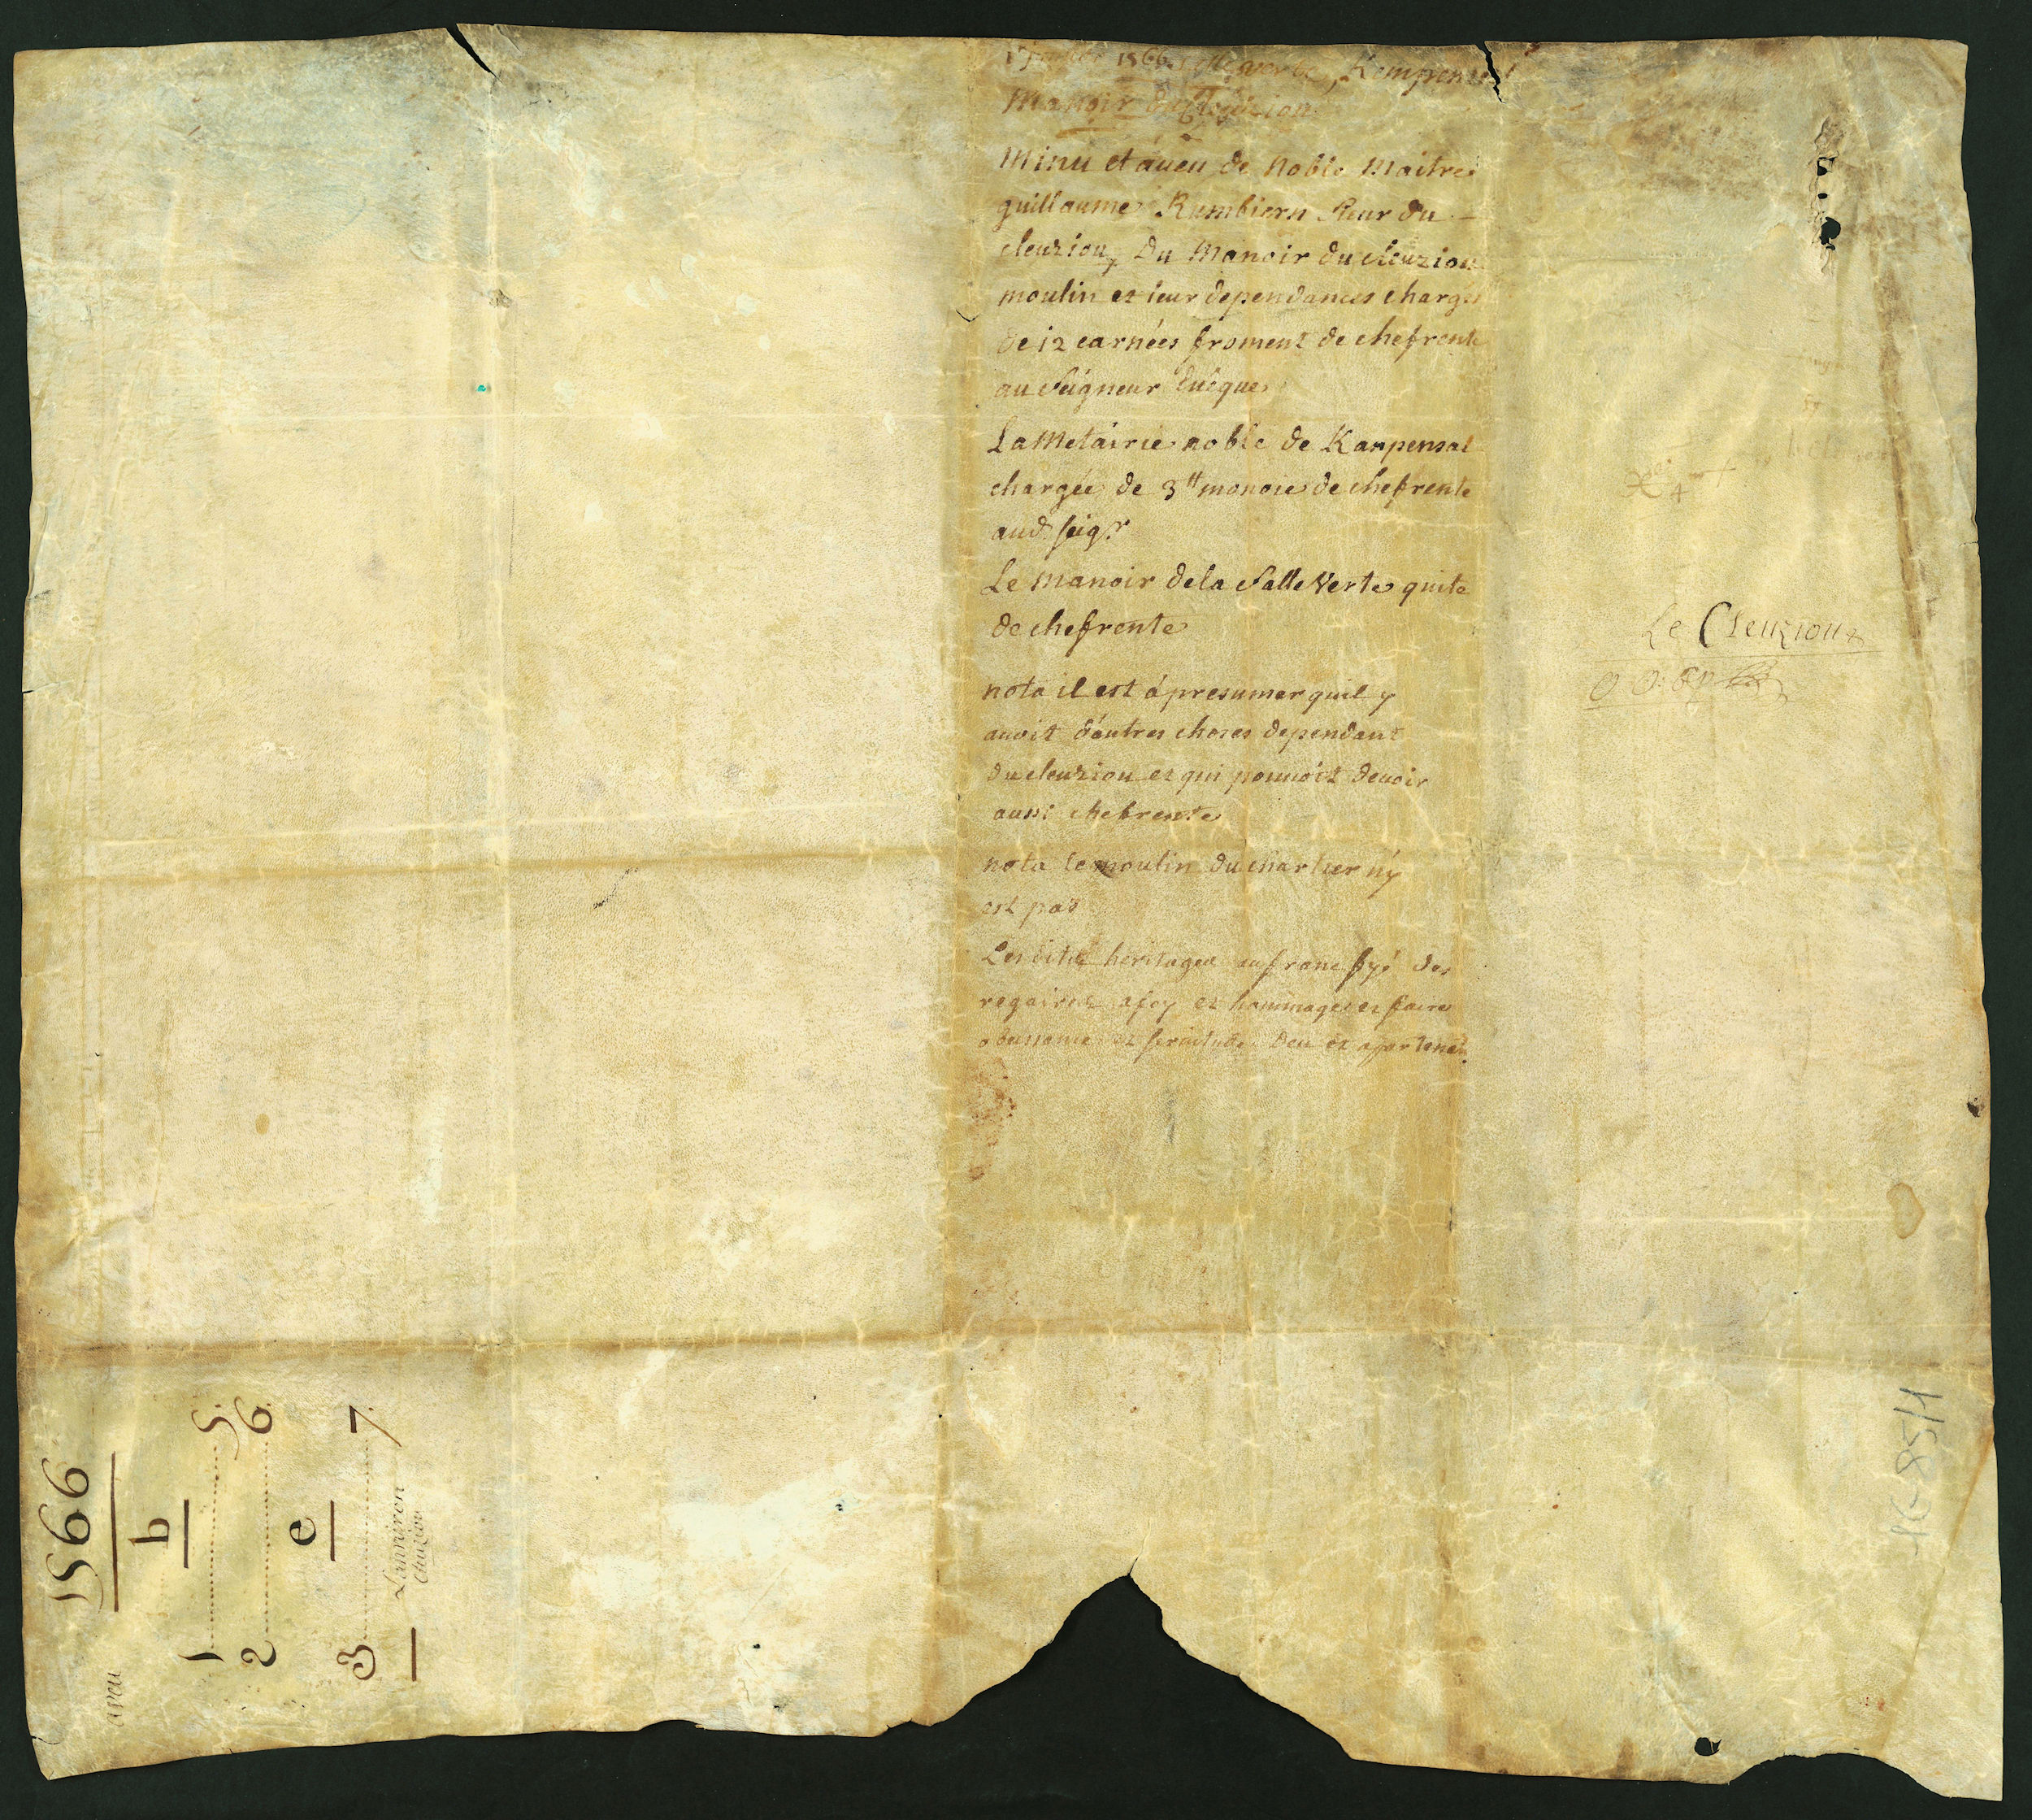 1566 Salle verte, Kempensal
Manoir du Cleuziou
Minu et aueu de Noble Maitre
guillaume Kumbiern sieur du
cleuziou, Du Manoir du cleuziou
moulin et leur dependances charges
de 12 carnées froment de chefrente
au seigneur Euéque
La Metairie noble de Kanpensal
chargée de 3tt monoie de chefrente
aud seigr
Le manoir de la Salle Verte quite
de chefrente
nota il est á presumer quil y
auoit d'autres choses dependant
du cleuziou et qui pouuoit deuoir
aussi chefrente
nota le moulin du chartier n'y
est pas
Les dits heritages au franc fyé des
regaires a foy et hommage et faire
obeissance et seruitude Deu et apartenir
Le Cleuziou
1G-85/1
1566
b
1 5.
2 6.
e
3 7.
Lanniron
Cleuziou
aveu